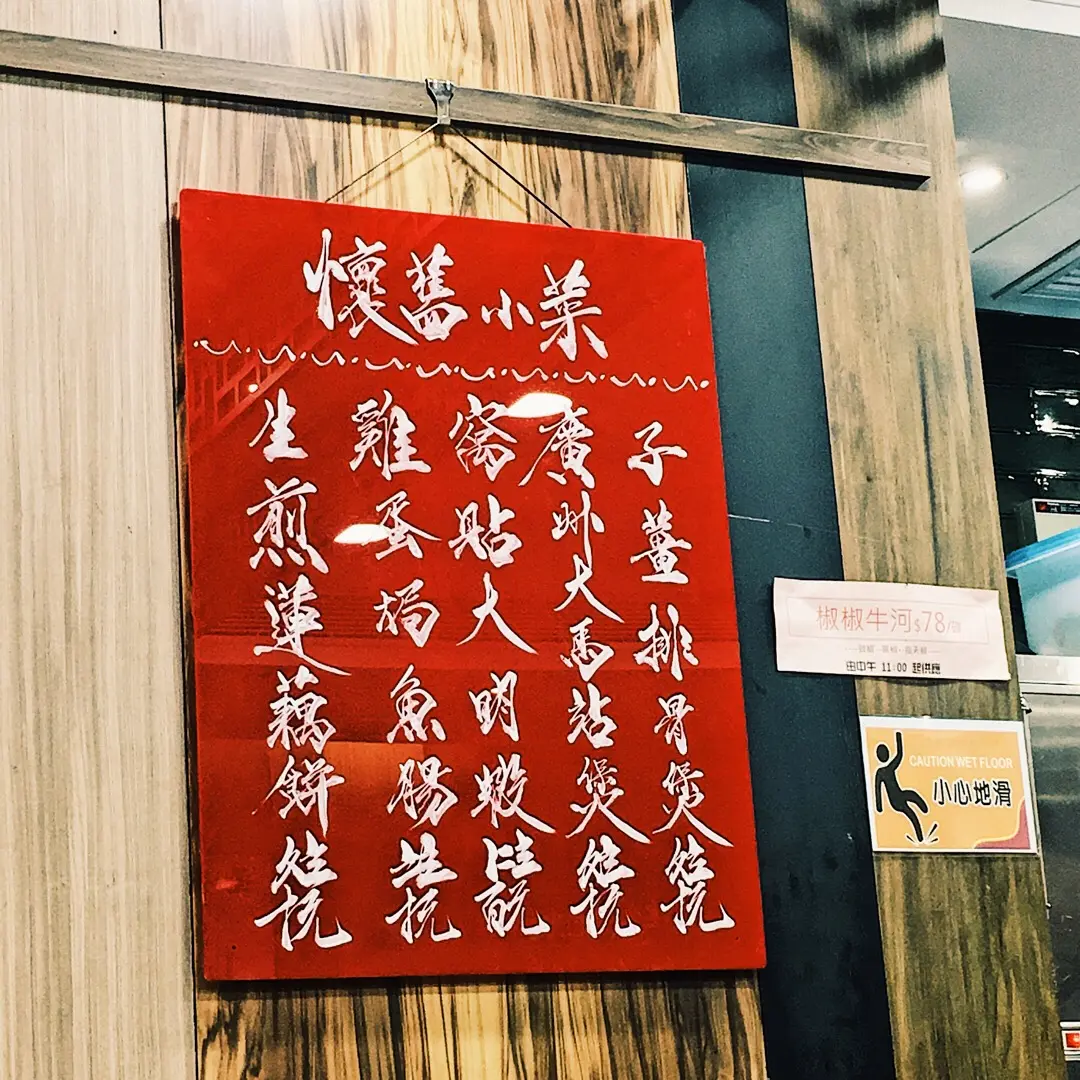 懷舊小菜
子薑排骨煲
廣州大馬站煲
窩貼大明蝦
雞蛋焗魚腸
生煎蓮藕餅
椒椒牛河$78
由中午 11:00 起供應
CAUTION WET FLOOR
小心地滑